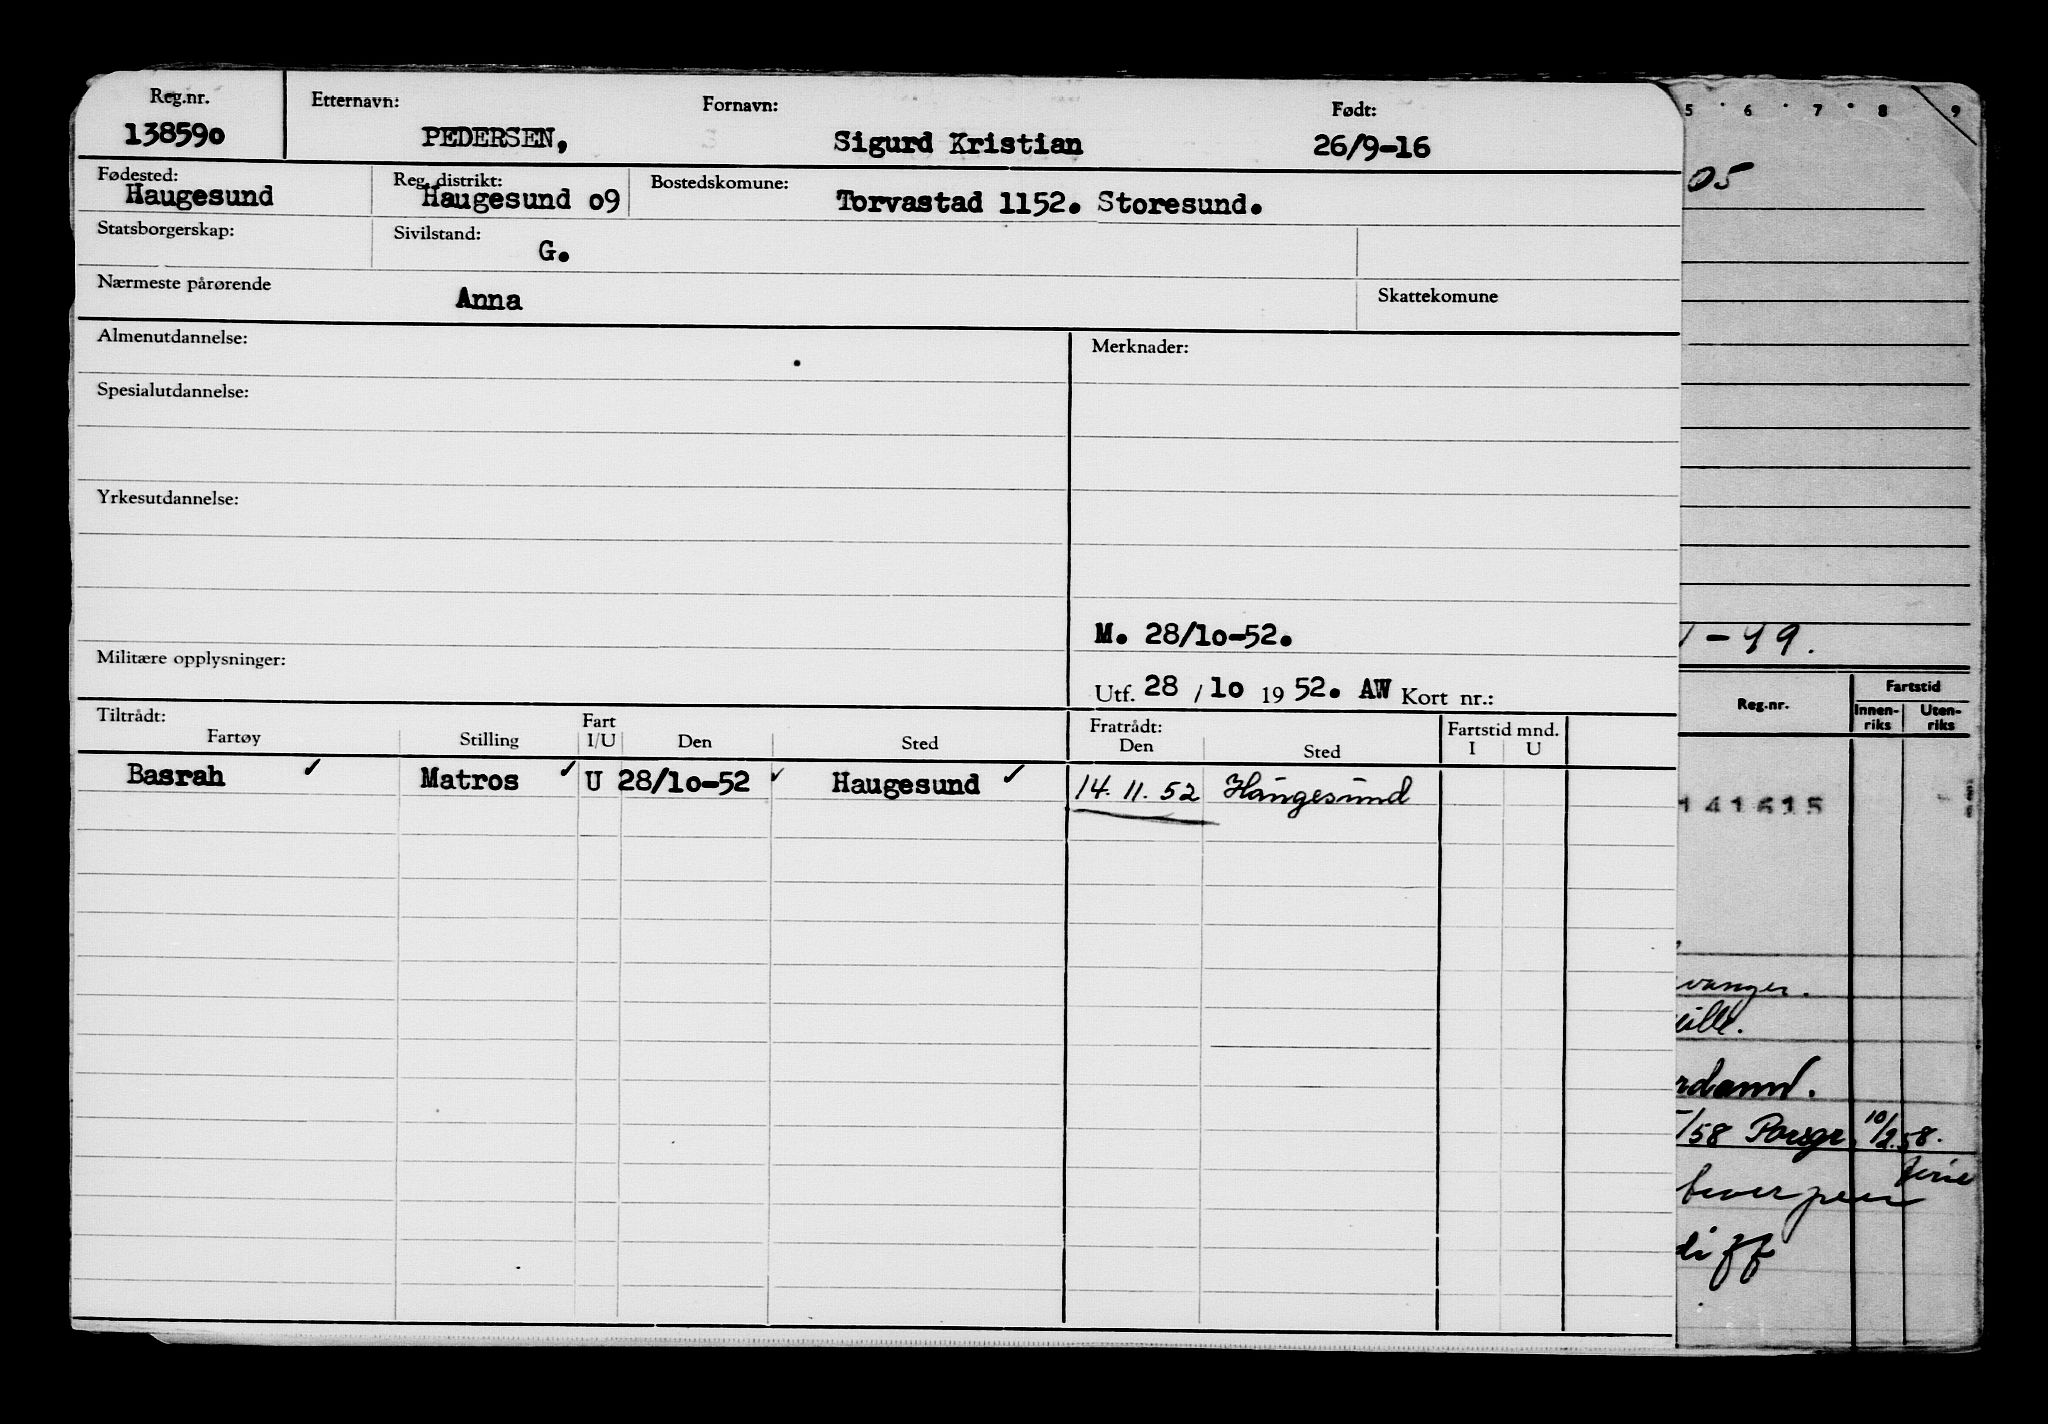 Reg.nr. Etternavn: Fornavn: Født:
138590 PEDERSEN, Sigurd Kristian 26/9-16
Fødested: Reg. distrikt: Bostedskomune:
Haugesund Haugesund 09 Torvastad 1152. Storesund.
Statsborgerskap: Sivilstand: G.
Nærmeste pårørende Anna Skattekomune
Almenutdannelse: Merknader:
Spesialutdannelse:
Yrkesutdannelse:
M. 28/10-52.
Militære opplysninger:
Utf. 28 / 10 19 52. AW Kort nr.:
Tiltrådt: Fratrådt: Fartstid mnd.
Fartøy Stilling Fart I/U Den Sted Den Sted I U
Basrah ✓ Matros ✓ U 28/10-52 ✓ Haugesund ✓ 14.11.52 Haugesund
5 6 7 8 9
05
-49.
Reg.nr. Fartstid
Innen-riks Uten-riks
141615
vanger.
/58 Porsgr. 10/2.58.
ferie